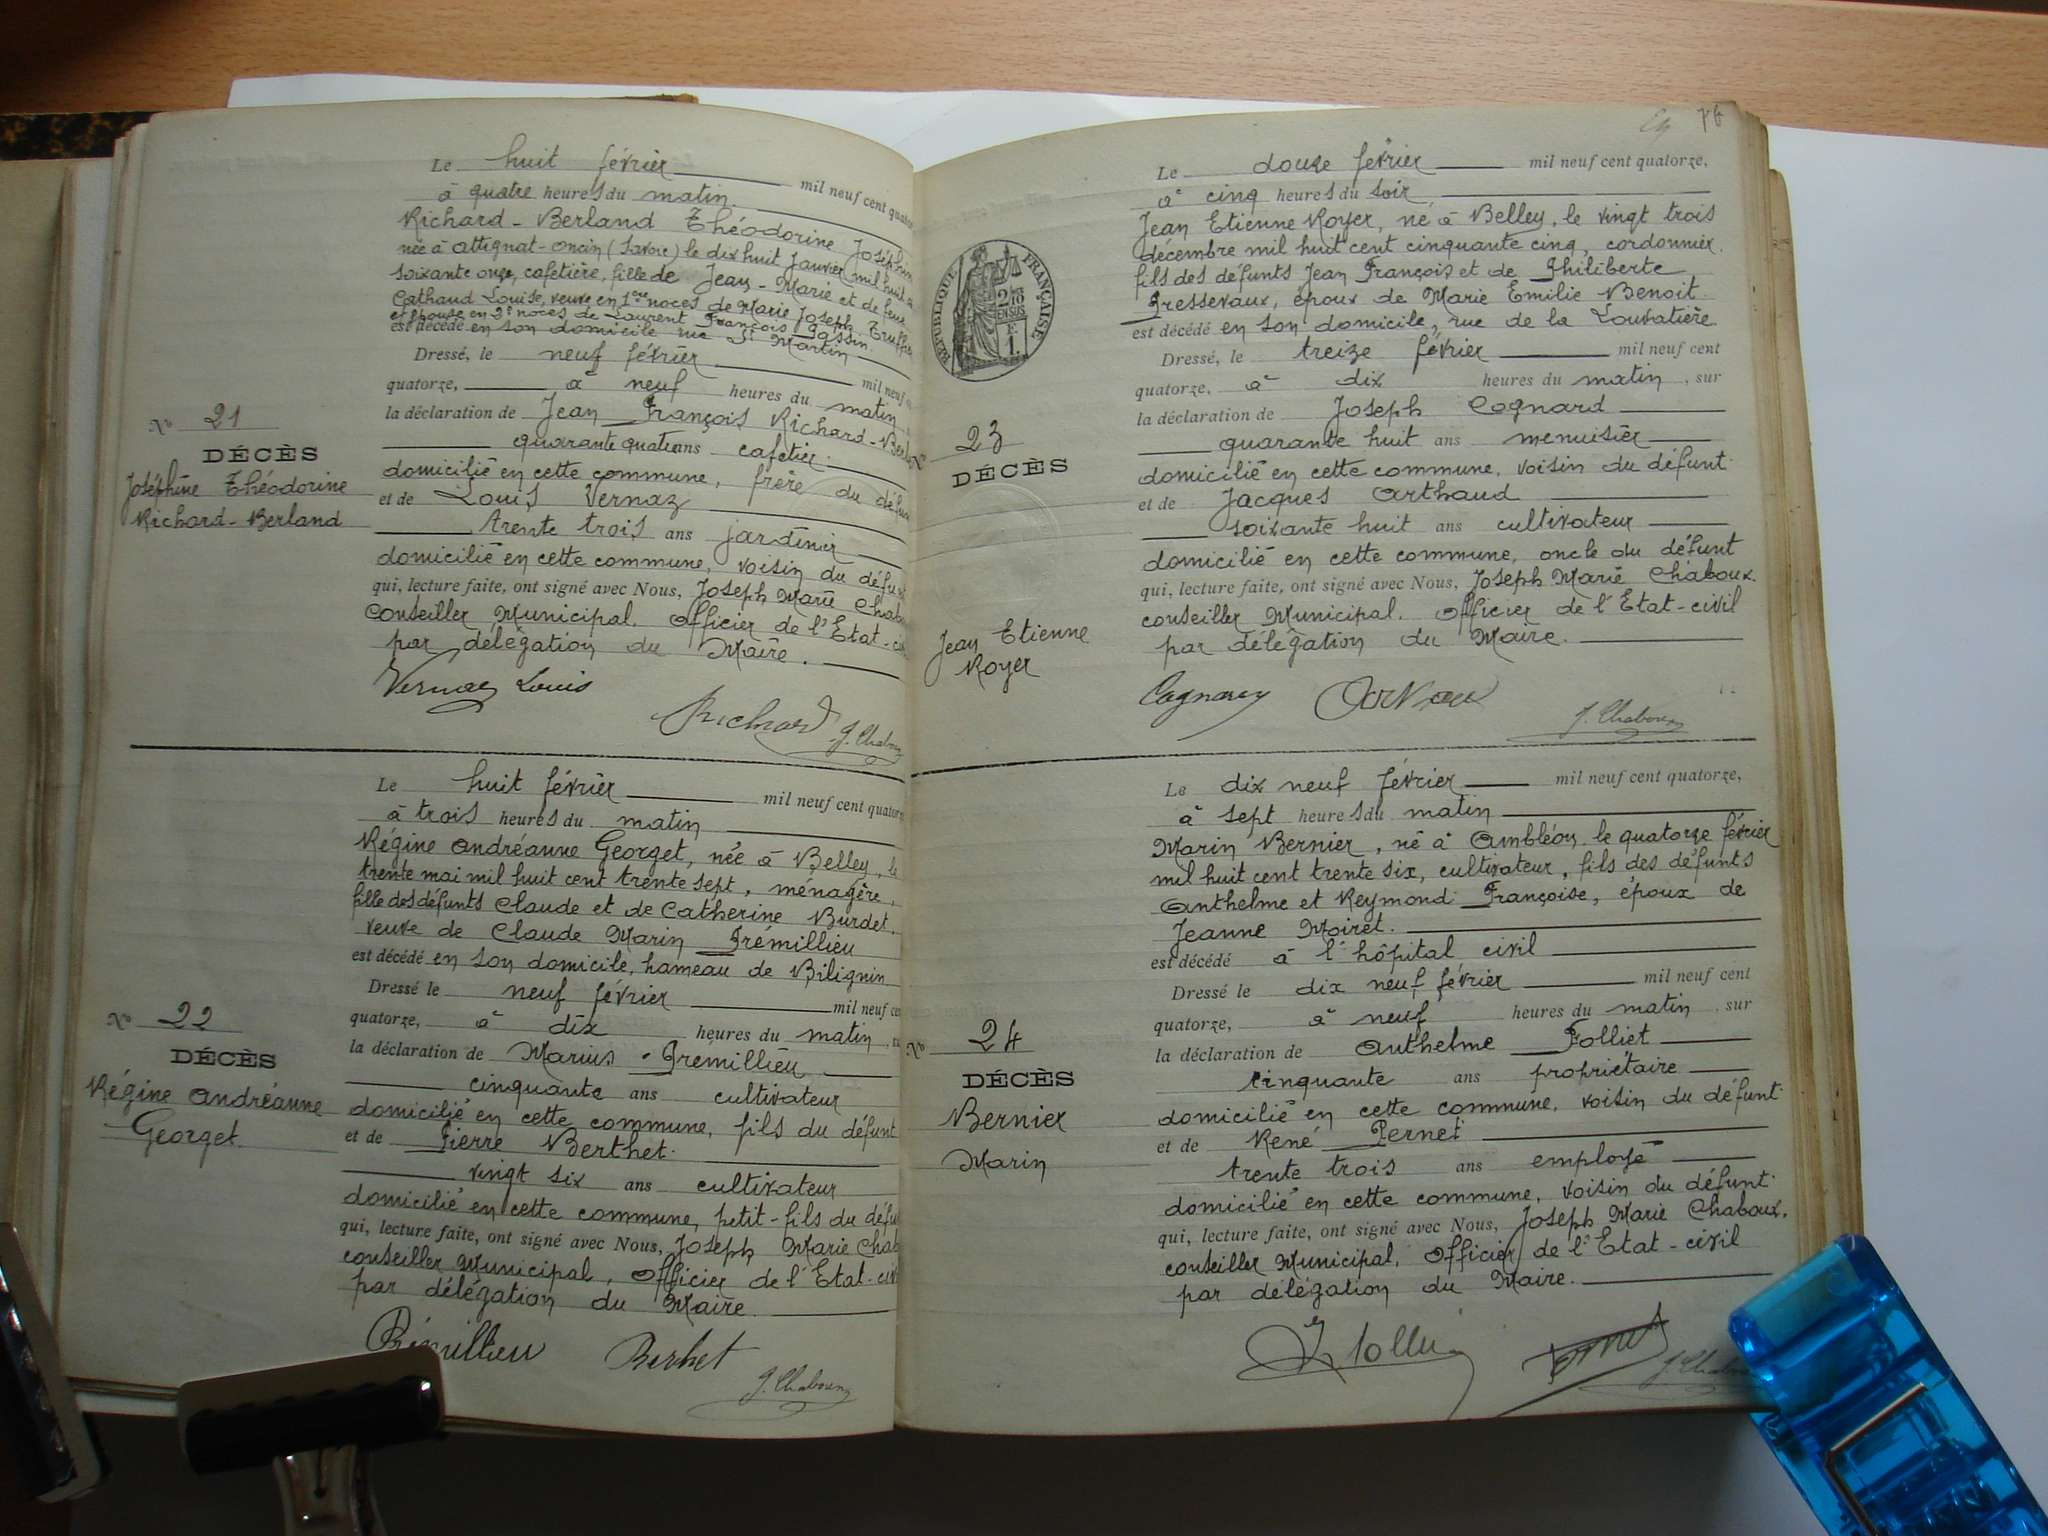 Le huit février mil neuf cent
à quatre heures du matin
Richard-Berland Théodorine
née à Attignat-oncin (Savoie) le dix huit Janvier mil huit
soixante onze, cafetière, fille de Jean-Marie et de feue
Cathaud Louise, veuve en 1ères noces de Marie Joseph
et épouse en 2e noces de Laurent François
est décédé en son domicile rue St Martin
Dressé, le neuf février
quatorze, à neuf heures du matin
No 21
la déclaration de Jean François
quarante quatre ans cafetier
DÉCÈS
domicilié en cette commune, frère du
Joséphine Théodorine
et de Louis Vernaz
Richard-Berland
trente trois ans jardinier
domicilié en cette commune, voisin du
qui, lecture faite, ont signé avec Nous, Joseph Marie
Conseiller Municipal. Officier de l'Etat-
par délégation du Maire.
Vernaz Louis
Richard J. Chaboux
Le huit février mil neuf cent
à trois heures du matin
Régine Andréanne Georget, née à Belley, le
trente mai mil huit cent trente sept, ménagère,
fille des défunts Claude et de Catherine Burdet,
veuve de Claude Marin Prémillieu
est décédé en son domicile, hameau de Bilignin
Dressé le neuf février mil neuf
No 22
quatorze, à dix heures du matin
la déclaration de Marius Prémillieu
DÉCÈS
cinquante ans cultivateur
Régine Andréanne
domicilié en cette commune, fils du défunt
Georget.
et de Pierre Berthet.
vingt six ans cultivateur
domicilié en cette commune, petit-fils du
qui, lecture faite, ont signé avec Nous, Joseph Marie
conseiller Municipal, Officier de l'Etat-
par délégation du Maire
Prémillieu Berthet
J. Chaboux
76
Le douze février mil neuf cent quatorze,
à cinq heures du soir
Jean Etienne Royer, né à Belley, le vingt trois
décembre mil huit cent cinquante cinq, cordonnier.
fils des défunts Jean François et de Philiberte
Pressevaux, époux de Marie Emilie Benoit.
RÉPUBLIQUE FRANÇAISE
est décédé en son domicile, rue de la Louvatière
Dressé, le treize février mil neuf cent
quatorze, à dix heures du matin, sur
la déclaration de Joseph Cognard
No 23
quarante huit ans menuisier
DÉCÈS
domicilié en cette commune, voisin du défunt
et de Jacques Arthaud
soixante huit ans cultivateur
domicilié en cette commune, oncle du défunt
qui, lecture faite, ont signé avec Nous, Joseph Marie Chaboux.
conseiller Municipal. Officier de l'Etat-civil
Jean Etienne
par délégation du Maire.
Royer
Cognard
J. Chaboux
Le dix neuf février mil neuf cent quatorze,
à sept heures du matin
Marin Bernier, né à Ambléon le quatorze février
mil huit cent trente six, cultivateur, fils des défunts
Anthelme et Reymond Françoise, époux de
Jeanne Moiret.
est décédé à l'hôpital civil
Dressé le dix neuf février mil neuf cent
quatorze, à neuf heures du matin, sur
No 24
la déclaration de Anthelme Folliet
DÉCÈS
cinquante ans propriétaire
Bernier
domicilié en cette commune, voisin du défunt
et de René Pernet
Marin
trente trois ans employé
domicilié en cette commune, voisin du défunt
qui, lecture faite, ont signé avec Nous, Joseph Marie Chaboux.
conseiller Municipal. Officier de l'Etat-civil
par délégation du Maire.